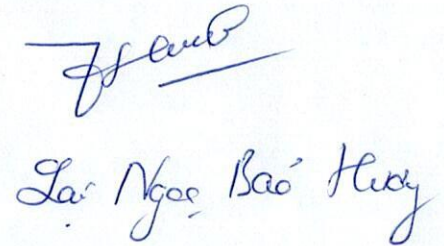 Lại Ngọc Bảo Huy